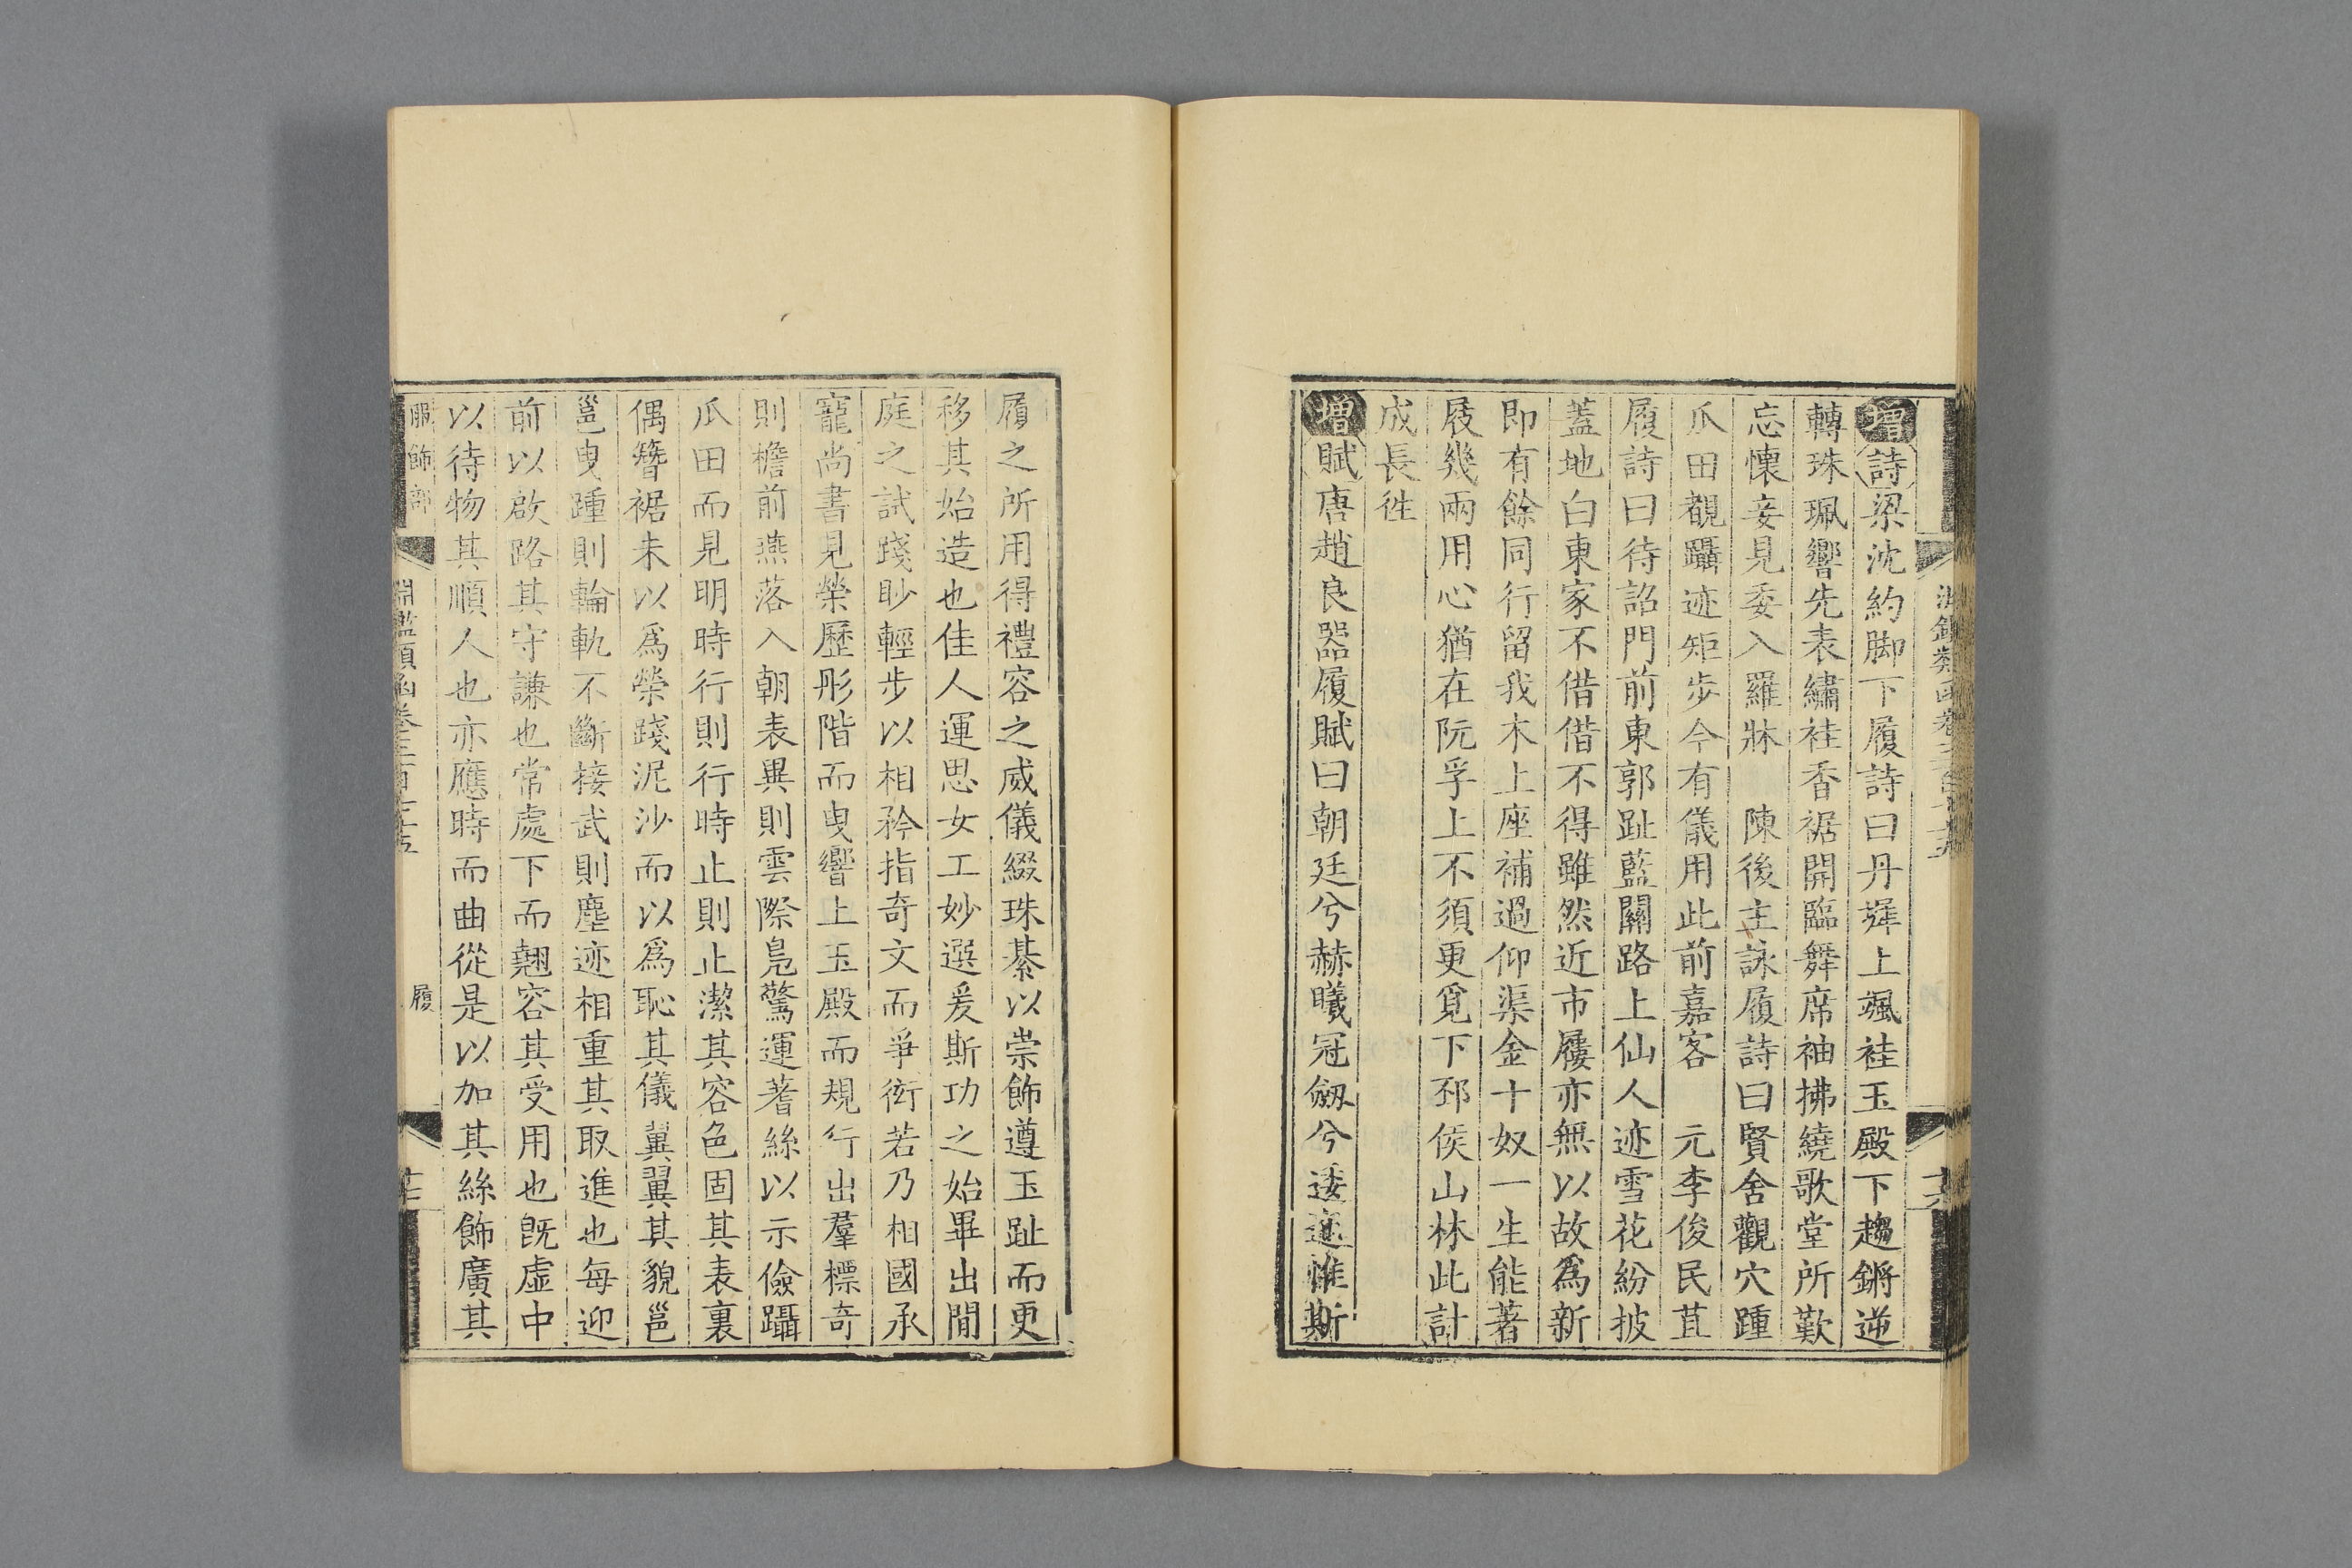 增詩梁沈約脚下履詩曰丹墀上颯袿玉殿下趨鏘逆
轉珠珮響先表繡袿香裾開臨舞席袖拂繞歌堂所歎
忘懷妾見委入羅牀　陳後主詠履詩曰賢舍觀穴踵
爪田覩躡迹矩步今有儀用此前嘉客　元李俊民苴
履詩曰待詔門前東郭趾藍關路上仙人迹雪花紛披
蓋地白東家不借借不得雖然近市屨亦無以故爲新
即有餘同行留我木上座補過仰渠金十奴一生能著
屐幾兩用心猶在阮孚上不須更覓下邳侯山林此計
成長徃
增賦唐趙良器履賦曰朝廷兮赫曦冠劔兮逶迤惟斯
履之所用得禮容之威儀綴珠綦以崇飾遵玉趾而更
移其始造也佳人運思女工妙選爰斯功之始畢出閒
庭之試踐眇輕步以相矜指奇文而爭衒若乃相國承
寵尚書見榮歷彤階而曳響上玉殿而規行出羣標奇
則檐前燕落入朝表異則雲際鳧驚運蓍絲以示儉躡
爪田而見明時行則行時止則止潔其容色固其表裏
偶簪裾未以爲榮踐泥沙而以爲恥其儀翼翼其貌邕
邕曳踵則輪軌不斷接武則塵迹相重其取進也每迎
前以啟路其守謙也常處下而翹容其受用也旣虛中
以待物其順人也亦應時而曲從是以加其絲飾廣其
服飾部
淵鑑類函卷三百七十五
履